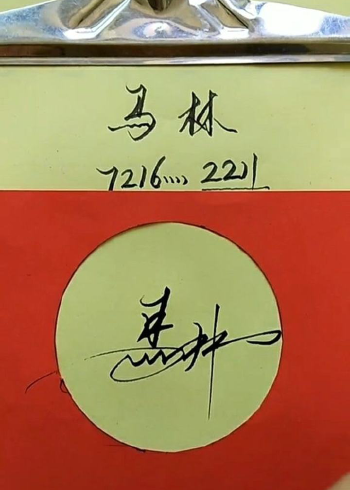 马林
7216.... 2211
馬林